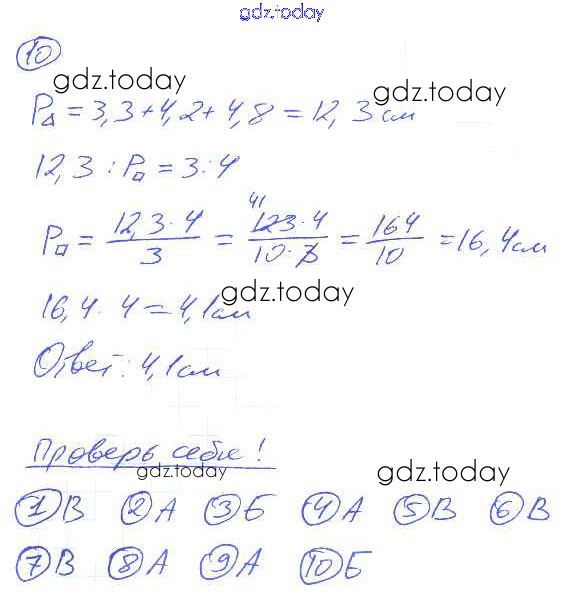 gdz.today
10
gdz.today
gdz.today
P△ = 3,3 + 4,2 + 4,8 = 12,3 см
12,3 : P□ = 3 : 4
P□ = 12,3 · 4 / 3 = 123 · 4 / 10 · 3 = 164 / 10 = 16,4 см
41
16,4 : 4 = 4,1 см
gdz.today
Ответ: 4,1 см
Проверь себя!
gdz.today
gdz.today
1 В 2 А 3 Б 4 А 5 В 6 В
7 В 8 А 9 А 10 Б